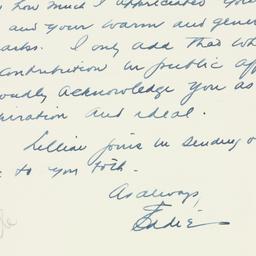 how much I appreciated you
and your warm and gener
acts. I only add that wh
contribution in public aff
oudly acknowledge you as
iration and ideal.
Lillian joins in sending o
to you both.
As always,
Eddie